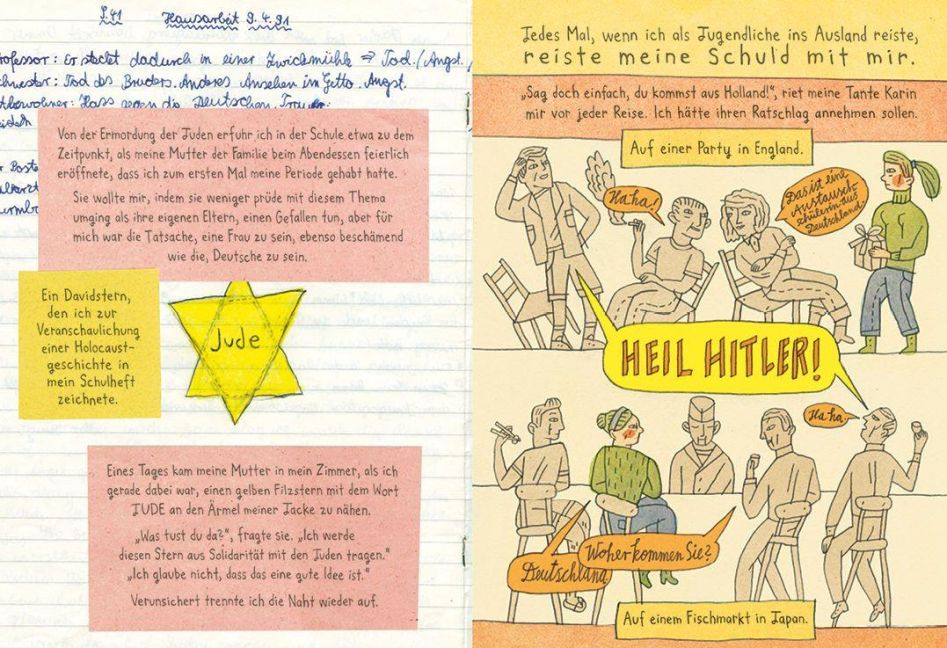 S.41 Hausarbeit 9.4.91
rofessor: Er steckt dadurch in einer Zwickmühle ⇒ Tod./Angst.
chwester: Tod des Bruders. Anderes Ansehen im Getto. Angst.
tbewohner: Hass gegen die Deutschen.
Von der Ermordung der Juden erfuhr ich in der Schule etwa zu dem
Zeitpunkt, als meine Mutter der Familie beim Abendessen feierlich
eröffnete, dass ich zum ersten Mal meine Periode gehabt hatte.
Sie wollte mir, indem sie weniger prüde mit diesem Thema
umging als ihre eigenen Eltern, einen Gefallen tun, aber für
mich war die Tatsache, eine Frau zu sein, ebenso beschämend
wie die, Deutsche zu sein.
Ein Davidstern,
den ich zur
Veranschaulichung
einer Holocaust-
geschichte in
mein Schulheft
zeichnete.
Jude
Eines Tages kam meine Mutter in mein Zimmer, als ich
gerade dabei war, einen gelben Filzstern mit dem Wort
JUDE an den Ärmel meiner Jacke zu nähen.
„Was tust du da?", fragte sie. „Ich werde
diesen Stern aus Solidarität mit den Juden tragen."
„Ich glaube nicht, dass das eine gute Idee ist."
Verunsichert trennte ich die Naht wieder auf.
Jedes Mal, wenn ich als Jugendliche ins Ausland reiste,
reiste meine Schuld mit mir.
„Sag doch einfach, du kommst aus Holland!", riet meine Tante Karin
mir vor jeder Reise. Ich hätte ihren Ratschlag annehmen sollen.
Auf einer Party in England.
Ha ha!
Das ist eine
Austausch-
schülerin aus
Deutschland.
HEIL HITLER!
Ha ha
Woher kommen Sie?
Deutschland
Auf einem Fischmarkt in Japan.